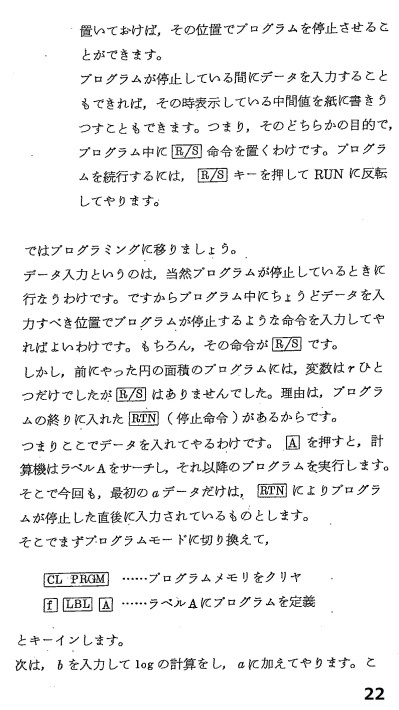 置いておけば，その位置でプログラムを停止させるこ
とができます。
プログラムが停止している間にデータを入力すること
もできれば，その時表示している中間値を紙に書きう
つすこともできます。つまり，そのどちらかの目的で，
プログラム中に R/S 命令を置くわけです。プログラ
ムを続行するには， R/S キーを押して RUN に反転
してやります。
ではプログラミングに移りましょう。
データ入力というのは，当然プログラムが停止しているときに
行なうわけです。ですからプログラム中にちょうどデータを入
力すべき位置でプログラムが停止するような命令を入力してや
ればよいわけです。もちろん，その命令が R/S です。
しかし，前にやった円の面積のプログラムには，変数は r ひと
つだけでしたが R/S はありませんでした。理由は，プログラ
ムの終りに入れた RTN （停止命令）があるからです。
つまりここでデータを入れてやるわけです。 A を押すと，計
算機はラベルAをサーチし，それ以降のプログラムを実行します。
そこで今回も，最初の a データだけは， RTN によりプログラ
ムが停止した直後に入力されているものとします。
そこでまずプログラムモードに切り換えて，
CL PRGM ……プログラムメモリをクリヤ
f LBL A ……ラベルAにプログラムを定義
とキーインします。
次は， b を入力して log の計算をし， a に加えてやります。こ
22